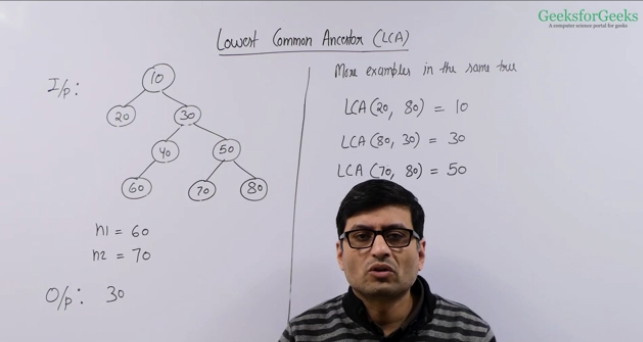 GeeksforGeeks
A computer science portal for geeks
Lowest Common Ancestor (LCA)
I/p:
10
20
30
40
50
60
70
80
n1 = 60
n2 = 70
O/p: 30
More examples in the same tree
LCA (20, 80) = 10
LCA (80, 30) = 30
LCA (70, 80) = 50